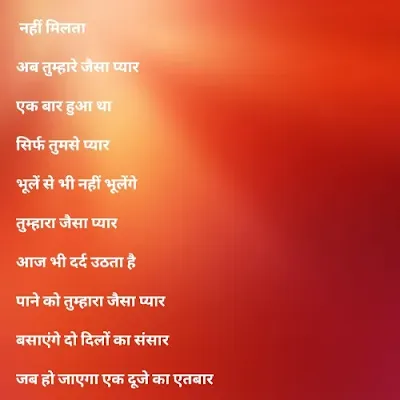 नहीं मिलता
अब तुम्हारे जैसा प्यार
एक बार हुआ था
सिर्फ तुमसे प्यार
भूलें से भी नहीं भूलेंगे
तुम्हारा जैसा प्यार
आज भी दर्द उठता है
पाने को तुम्हारा जैसा प्यार
बसाएंगे दो दिलों का संसार
जब हो जाएगा एक दूजे का एतबार